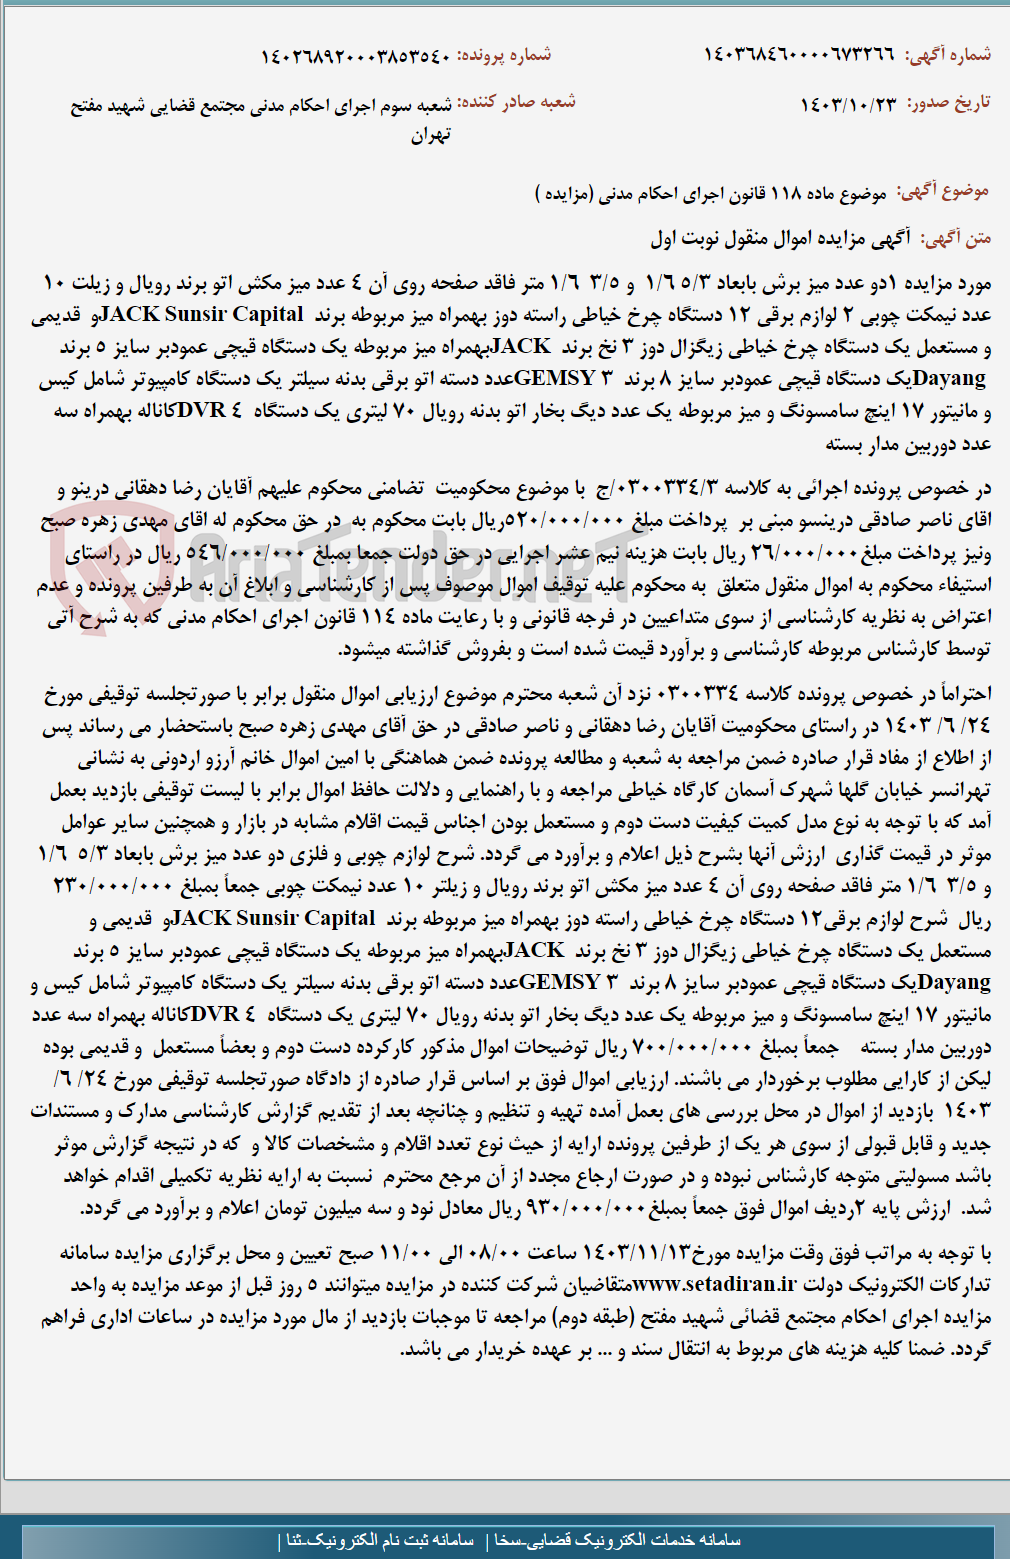 شماره آگهی: ۱۴۰۳۶۸۴۶۰۰۰۰۶۷۳۲۶۶ شماره پرونده: ۱۴۰۲۶۸۹۲۰۰۰۳۸۵۳۵۴۰
تاریخ صدور: ۱۴۰۳/۱۰/۲۳ شعبه صادر کننده: شعبه سوم اجرای احکام مدنی مجتمع قضایی شهید مفتح
تهران
موضوع آگهی: موضوع ماده ۱۱۸ قانون اجرای احکام مدنی (مزایده )
متن آگهی: آگهی مزایده اموال منقول نوبت اول
مورد مزایده ۱دو عدد میز برش بابعاد ۵/۳ ۱/۶ و ۳/۵ ۱/۶ متر فاقد صفحه روی آن ۴ عدد میز مکش اتو برند رویال و زیلت ۱۰
عدد نیمکت چوبی ۲ لوازم برقی ۱۲ دستگاه چرخ خیاطی راسته دوز بهمراه میز مربوطه برند JACK Sunsir Capitalو قدیمی
و مستعمل یک دستگاه چرخ خیاطی زیگزال دوز ۳ نخ برند JACKبهمراه میز مربوطه یک دستگاه قیچی عمودبر سایز ۵ برند
Dayangیک دستگاه قیچی عمودبر سایز ۸ برند GEMSY ۳عدد دسته اتو برقی بدنه سیلتر یک دستگاه کامپیوتر شامل کیس
و مانیتور ۱۷ اینچ سامسونگ و میز مربوطه یک عدد دیگ بخار اتو بدنه رویال ۷۰ لیتری یک دستگاه DVR ۴کاناله بهمراه سه
عدد دوربین مدار بسته
در خصوص پرونده اجرائی به کلاسه ۰۳۰۰۳۳۴/۳/ج با موضوع محکومیت تضامنی محکوم علیهم آقایان رضا دهقانی درینو و
اقای ناصر صادقی درینسو مبنی بر پرداخت مبلغ ۵۲۰/۰۰۰/۰۰۰ریال بابت محکوم به در حق محکوم له اقای مهدی زهره صبح
ونیز پرداخت مبلغ۲۶/۰۰۰/۰۰۰ ریال بابت هزینه نیم عشر اجرایی در حق دولت جمعا بمبلغ ۵۴۶/۰۰۰/۰۰۰ ریال در راستای
استیفاء محکوم به اموال منقول متعلق به محکوم علیه توقیف اموال موصوف پس از کارشناسی و ابلاغ آن به طرفین پرونده و عدم
اعتراض به نظریه کارشناسی از سوی متداعیین در فرجه قانونی و با رعایت ماده ۱۱۴ قانون اجرای احکام مدنی که به شرح آتی
توسط کارشناس مربوطه کارشناسی و برآورد قیمت شده است و بفروش گذاشته میشود.
احتراماً در خصوص پرونده کلاسه ۰۳۰۰۳۳۴ نزد آن شعبه محترم موضوع ارزیابی اموال منقول برابر با صورتجلسه توقیفی مورخ
۲۴/ ۶/ ۱۴۰۳ در راستای محکومیت آقایان رضا دهقانی و ناصر صادقی در حق آقای مهدی زهره صبح باستحضار می رساند پس
از اطلاع از مفاد قرار صادره ضمن مراجعه به شعبه و مطالعه پرونده ضمن هماهنگی با امین اموال خانم آرزو اردونی به نشانی
تهرانسر خیابان گلها شهرک آسمان کارگاه خیاطی مراجعه و با راهنمایی و دلالت حافظ اموال برابر با لیست توقیفی بازدید بعمل
آمد که با توجه به نوع مدل کمیت کیفیت دست دوم و مستعمل بودن اجناس قیمت اقلام مشابه در بازار و همچنین سایر عوامل
موثر در قیمت گذاری ارزش آنها بشرح ذیل اعلام و برآورد می گردد. شرح لوازم چوبی و فلزی دو عدد میز برش بابعاد ۵/۳ ۱/۶
و ۳/۵ ۱/۶ متر فاقد صفحه روی آن ۴ عدد میز مکش اتو برند رویال و زیلتر ۱۰ عدد نیمکت چوبی جمعاً بمبلغ ۲۳۰/۰۰۰/۰۰۰
ریال شرح لوازم برقی۱۲ دستگاه چرخ خیاطی راسته دوز بهمراه میز مربوطه برند JACK Sunsir Capitalو قدیمی و
مستعمل یک دستگاه چرخ خیاطی زیگزال دوز ۳ نخ برند JACKبهمراه میز مربوطه یک دستگاه قیچی عمودبر سایز ۵ برند
Dayangیک دستگاه قیچی عمودبر سایز ۸ برند GEMSY ۳عدد دسته اتو برقی بدنه سیلتر یک دستگاه کامپیوتر شامل کیس و
مانیتور ۱۷ اینچ سامسونگ و میز مربوطه یک عدد دیگ بخار اتو بدنه رویال ۷۰ لیتری یک دستگاه DVR ۴کاناله بهمراه سه عدد
دوربین مدار بسته جمعاً بمبلغ ۷۰۰/۰۰۰/۰۰۰ ریال توضیحات اموال مذکور کارکرده دست دوم و بعضاً مستعمل و قدیمی بوده
لیکن از کارایی مطلوب برخوردار می باشند. ارزیابی اموال فوق بر اساس قرار صادره از دادگاه صورتجلسه توقیفی مورخ ۲۴/ ۶/
۱۴۰۳ بازدید از اموال در محل بررسی های بعمل آمده تهیه و تنظیم و چنانچه بعد از تقدیم گزارش کارشناسی مدارک و مستندات
جدید و قابل قبولی از سوی هر یک از طرفین پرونده ارایه از حیث نوع تعدد اقلام و مشخصات کالا و که در نتیجه گزارش موثر
باشد مسولیتی متوجه کارشناس نبوده و در صورت ارجاع مجدد از آن مرجع محترم نسبت به ارایه نظریه تکمیلی اقدام خواهد
شد. ارزش پایه ۲ردیف اموال فوق جمعاً بمبلغ۹۳۰/۰۰۰/۰۰۰ ریال معادل نود و سه میلیون تومان اعلام و برآورد می گردد.
با توجه به مراتب فوق وقت مزایده مورخ۱۴۰۳/۱۱/۱۳ ساعت ۰۸/۰۰ الی ۱۱/۰۰ صبح تعیین و محل برگزاری مزایده سامانه
تدارکات الکترونیک دولت www.setadiran.irمتقاضیان شرکت کننده در مزایده میتوانند ۵ روز قبل از موعد مزایده به واحد
مزایده اجرای احکام مجتمع قضائی شهید مفتح (طبقه دوم) مراجعه تا موجبات بازدید از مال مورد مزایده در ساعات اداری فراهم
گردد. ضمنا کلیه هزینه های مربوط به انتقال سند و ... بر عهده خریدار می باشد.
AriaTender.neT
سامانه خدمات الکترونیک قضایی-سخا | سامانه ثبت نام الکترونیک-ثنا |